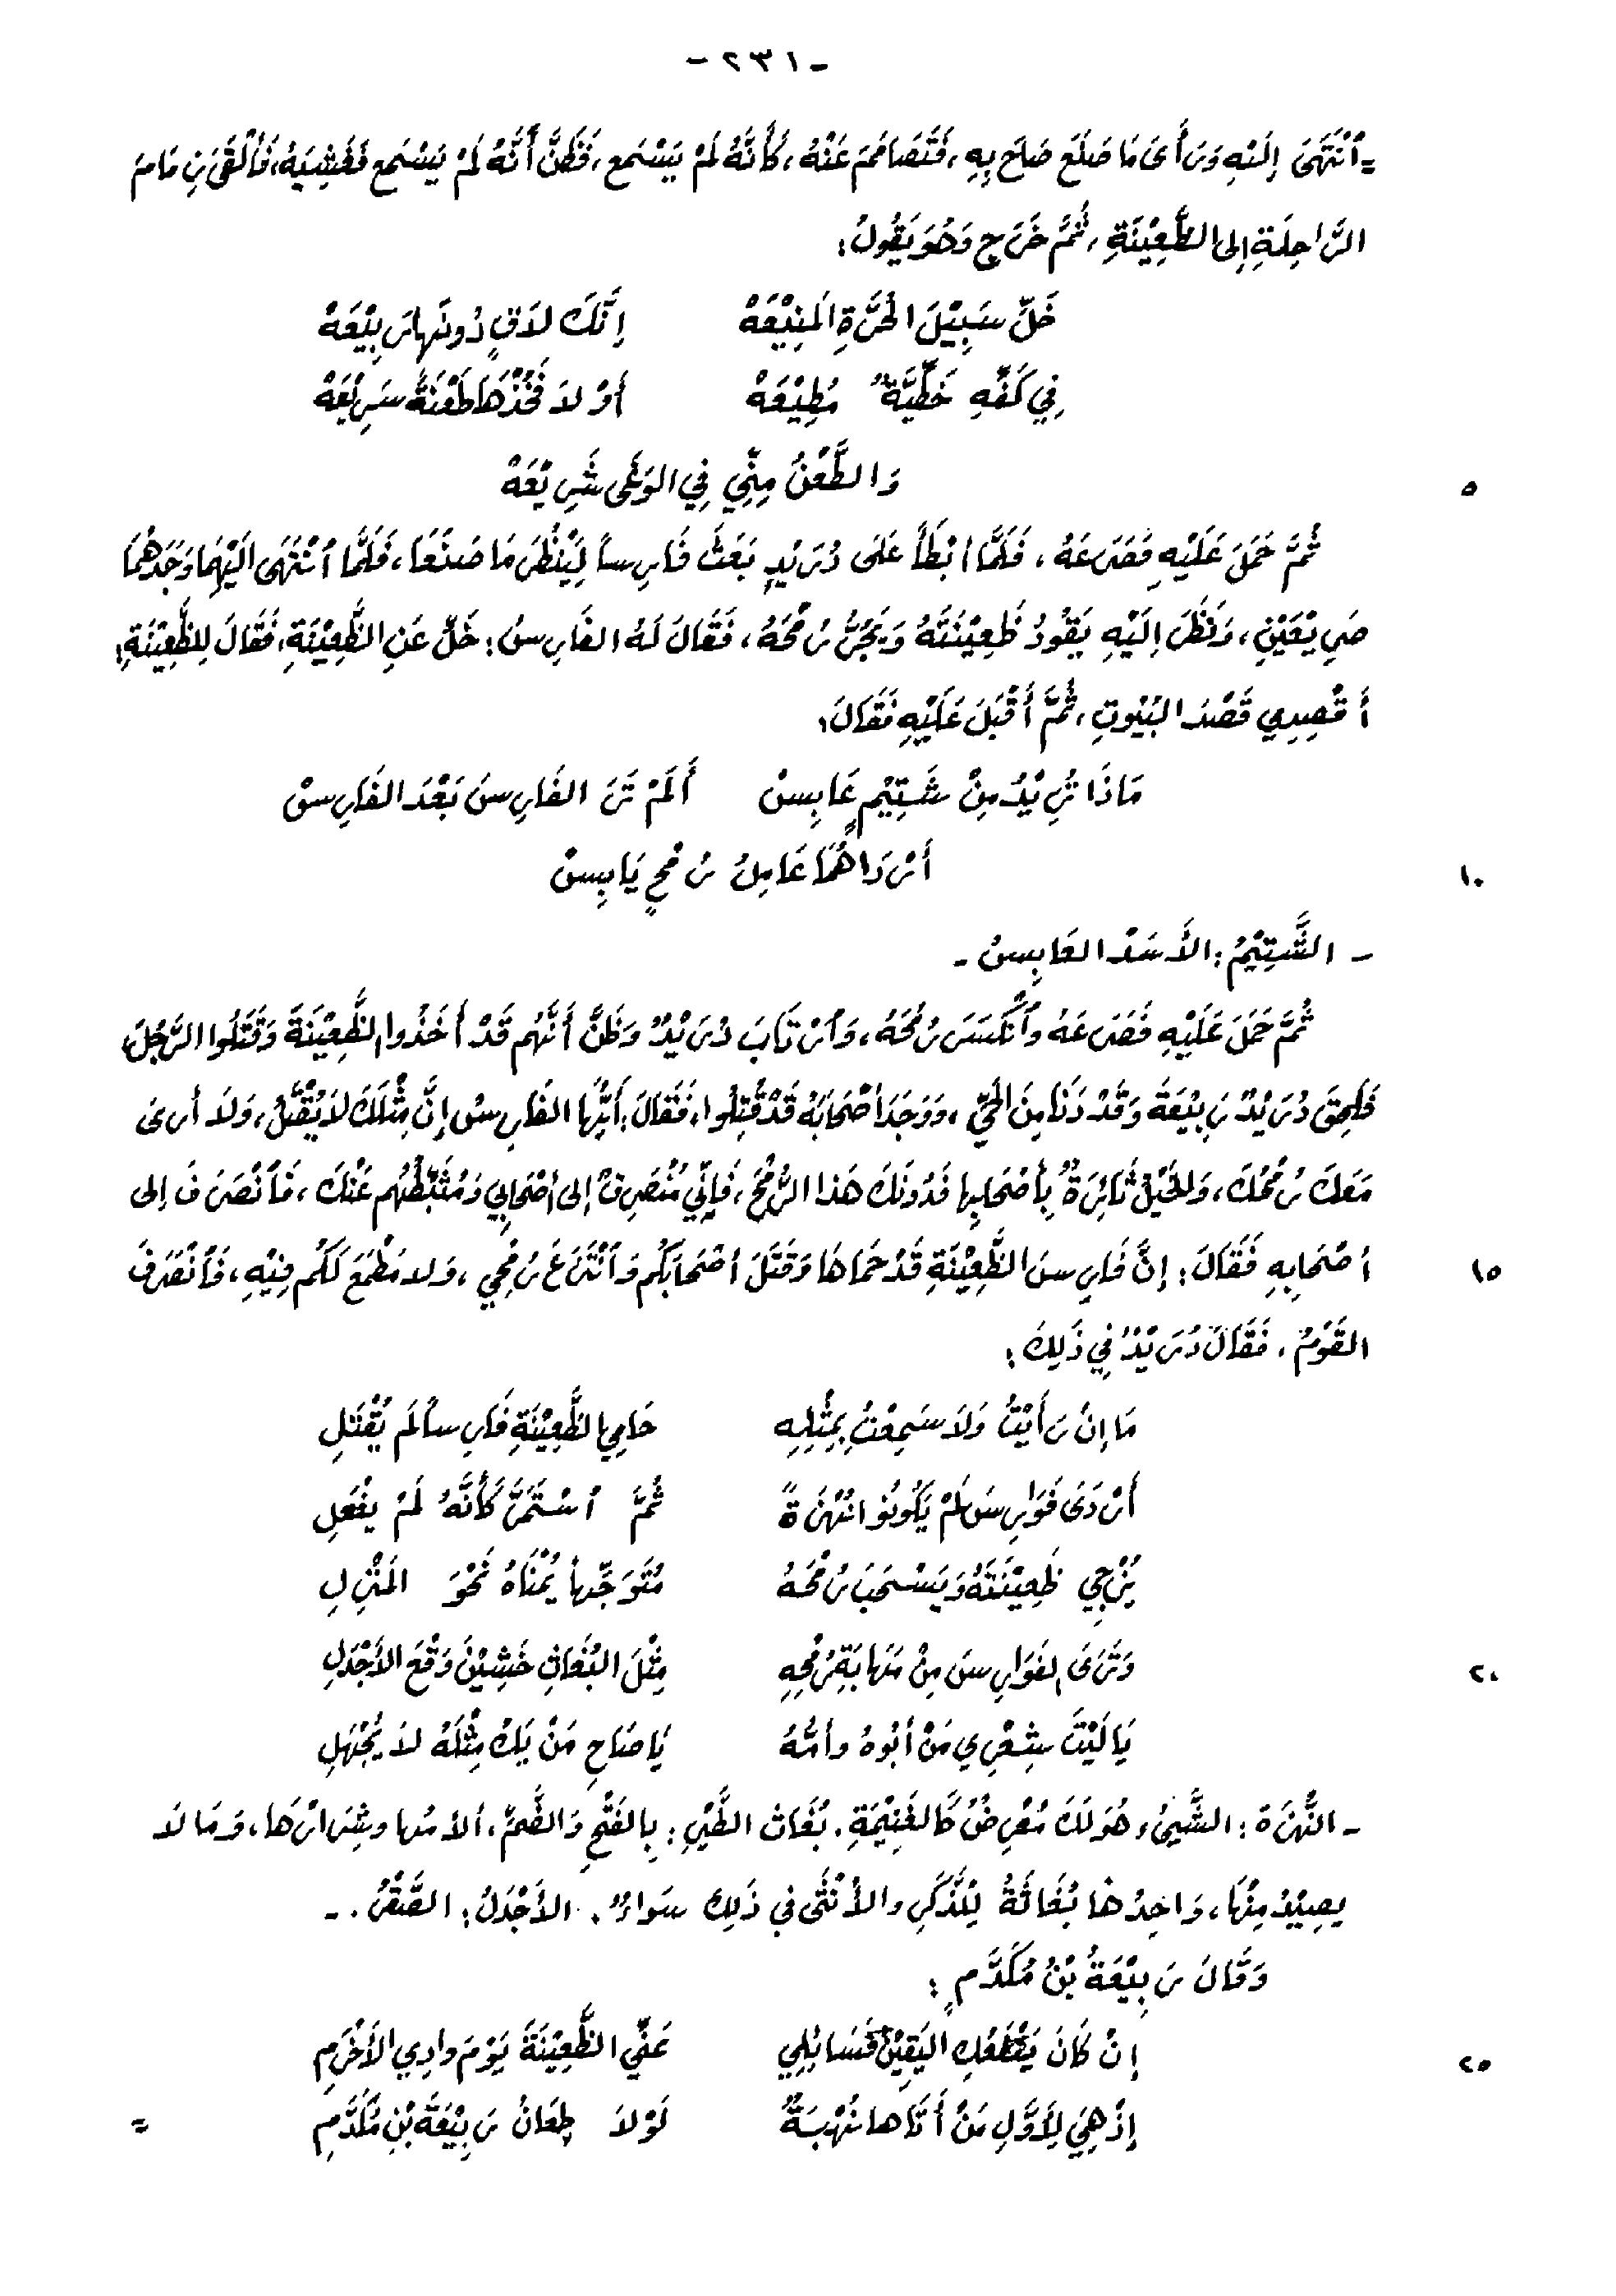 - ٢٣١ -
= ٱنْتَهَى إِلَيْهِ وَرَأَى مَا صَنَعَ صَاحَ بِهِ، فَتَصَامَمَ عَنْهُ، كَأَنَّهُ لَمْ يَسْمَع، فَظَنَّ أَنَّهُ لَمْ يَسْمَع فَغَشِيَهُ، فَأَلْقَى زِمَامَ
الرَّاحِلَةِ إلى الظَّعِيْنَةِ، ثُمَّ خَرَجَ وَهُوَ يَقُولُ:
خَلِّ سَبِيْلَ الحُرَّةِ المَنِيْعَهْ إِنَّكَ لاَقٍ دُونَها رَبِيْعَهْ
فِي كَفِّهِ خَطِّيَّةٌ مُطِيْعَهْ أَوْ لاَ فَخُذْهَا طَعْنَةً سَرِيْعَهْ
وَالطَّعْنُ مِنِّي فِي الوَغَى شَرِيْعَهْ
٥
ثُمَّ حَمَلَ عَلَيْهِ فَصَرَعَهُ، فَلَمَّا أبْطَأَ عَلَى دُرَيْدٍ بَعَثَ فَارِساً لِيَنْظُرَ مَا صَنَعَا، فَلَمَّا ٱنْتَهَى الَيْهِمَا وَجَدَهُمَا
صَرِيْعَيْنِ، وَنَظَرَ إلَيْهِ يَقُودُ ظَعِيْنَتَهُ وَيَجُرُّ رُمْحَهُ، فَقَالَ لَهُ الفَارِسُ: خَلِّ عَنِ الظَّعِيْنَةِ، فَقَالَ لِلظَّعِيْنَةِ:
أَقْصِدِي قَصْدَ البُيُوتِ، ثُمَّ أَقْبَلَ عَلَيْهِ فَقَالَ:
مَاذَا تُرِيْدُ مِنْ شَتِيْمٍ عَابِسْ أَلَمْ تَرَ الفَارِسَ بَعْدَ الفَارِسْ
أَرْدَاهُمَا عَامِلُ رُمْحٍ يَابِسْ
١٠
- الشَّتِيْمُ: الأَسَدُ العَابِسُ -
ثُمَّ حَمَلَ عَلَيْهِ فَصَرَعَهُ وَٱنْكَسَرَ رُمْحُهُ، وَٱرْتَابَ دُرَيْدٌ وَظَنَّ أَنَّهُم قَدْ أخَذُوا الظَّعِيْنَةَ وَقَتَلُوا الرَّجُلَ،
فَلَحِقَ دُرَيْدٌ رَبِيْعَةَ وَقَدْ دَنَا مِنَ الحَيِّ، وَوَجَدَ أصْحَابَهُ قَدْ قُتِلُوا، فَقَالَ: أَيُّهَا الفَارِسُ إِنَّ مِثْلَكَ لاَ يُقْتَلُ، وَلاَ أرى
مَعَكَ رُمْحَكَ، وَالخَيْلُ ثَائِرَةٌ بِأَصْحَابِها فَدُونَكَ هَذا الرُّمْحَ، فَإِنِّي مُنْصَرِفٌ إلى أصْحَابِي وَمُثَبِّطُهُم عَنْكَ، فَٱنْصَرَفَ إلى
أصْحَابِهِ فَقَالَ: إنَّ فَارِسَ الظَّعِيْنَةِ قَدْ حَمَاهَا وَقَتَلَ أصْحَابَكُم وَٱنْتَزَعَ رُمْحِي، وَلا مَطْمَعَ لَكُم فِيْهِ، فَٱنْصَرَفَ
١٥
القَوْمُ، فَقَالَ دُرَيْدٌ فِي ذَلِكَ:
مَا إنْ رَأَيْتُ وَلاَ سَمِعْتُ بِمِثْلِهِ حَامِي الظَّعِيْنَةِ فَارِساً لَم يُقْتَلِ
أَرْدَى فَوَارِسَ لَمْ يَكُونُوا نُهْزَةً ثُمَّ ٱسْتَمَرَّ كَأَنَّهُ لَمْ يَفْعَلِ
يُزْجِي ظَعِيْنَتَهُ وَيَسْحَبُ رُمْحَهُ مُتَوَجِّهاً يُمْنَاهُ نَحْوَ المَنْزِلِ
وَتَرَى الفَوَارِسَ مِنْ مَهَابَةِ رُمْحِهِ مِثْلَ البُغَاثِ خَشِيْنَ وَقْعَ الأَجْدَلِ
٢٠
يَا لَيْتَ شِعْرِي مَنْ أبُوهُ وأمُّهُ يَا صَاحِ مَنْ يَكُ مِثْلَهُ لاَ يُجْهَلِ
- النُّهْزَة: الشَّيءُ هُوَ لَكَ مُعْرِضٌ كَالغَنِيْمَةِ. بُغَاثُ الطَّيْرِ: بِالفَتْحِ وَالضَّمِّ، ألأمُها وشِرَارُهَا، وَمَا لاَ
يصِيْدُ مِنْهَا، وَاحِدُهَا بُغَاثَةُ لِلذَّكَرِ والأُنْثَى فِي ذَلِكَ سَوَاءٌ. الأَجْدَلُ: الصَّقْرُ. -
وَقَالَ رَبِيْعَةُ بْنُ مُكَدَّمٍ:
إنْ كَانَ يَنْفَعُكِ اليَقِيْنُ فَسَائِلِي عَنِّي الظَّعِيْنَةَ يَوْمَ وادِي الأَخْرَمِ
٢٥
إذْ هِيَ لِأَوَّلِ مَنْ أَتَاها نُهْبَةٌ لَوْلاَ طِعَانُ رَبِيْعَةَ بْنِ مُكَدَّمِ
=